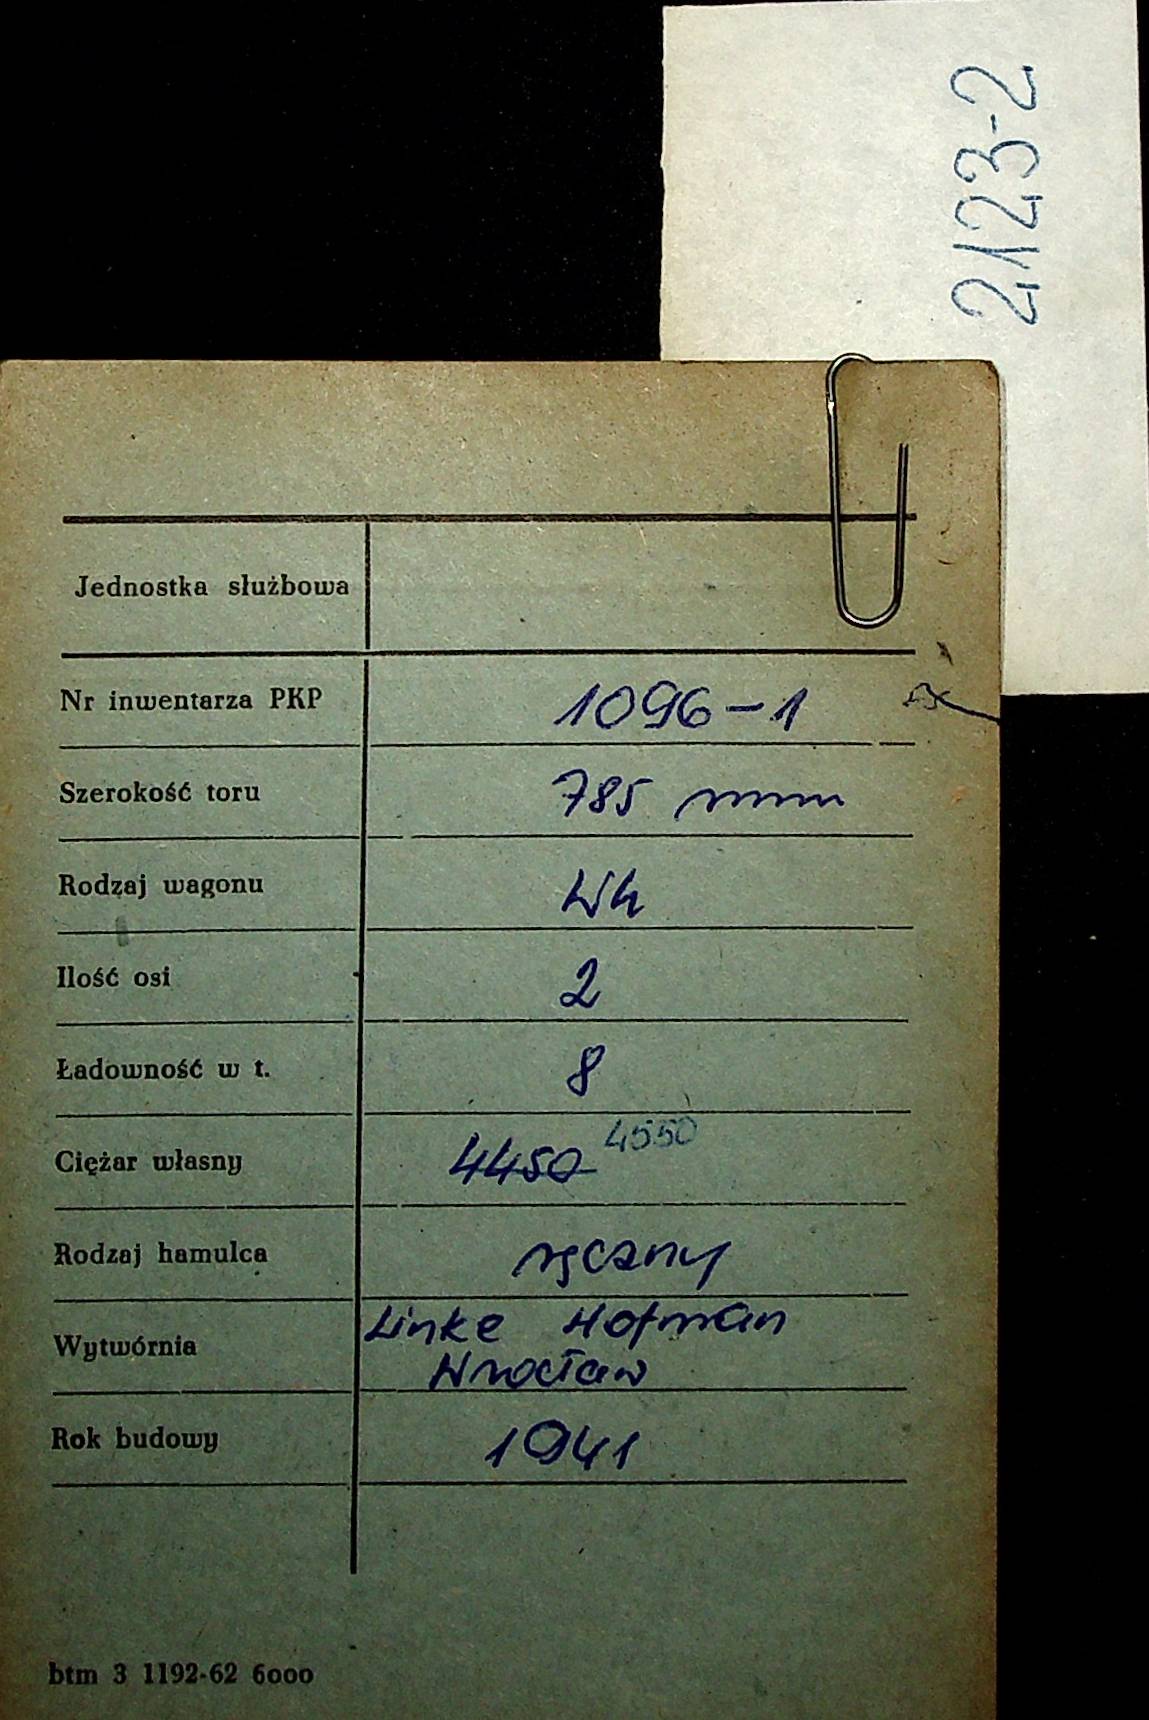 2123-2
Jednostka służbowa
Nr inwentarza PKP 1096-1
Szerokość toru 785 mm
Rodzaj wagonu Wh
Ilość osi 2
Ładowność w t. 8
4550
Ciężar własny 4450
Rodzaj hamulca ręczny
Linke Hofman
Wytwórnia
Wrocław
Rok budowy 1941
btm 3 1192-62 6000